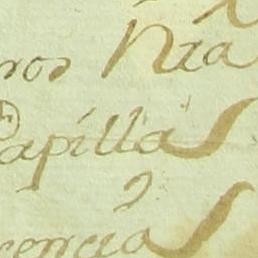 ros Nra
Capillas
cencias